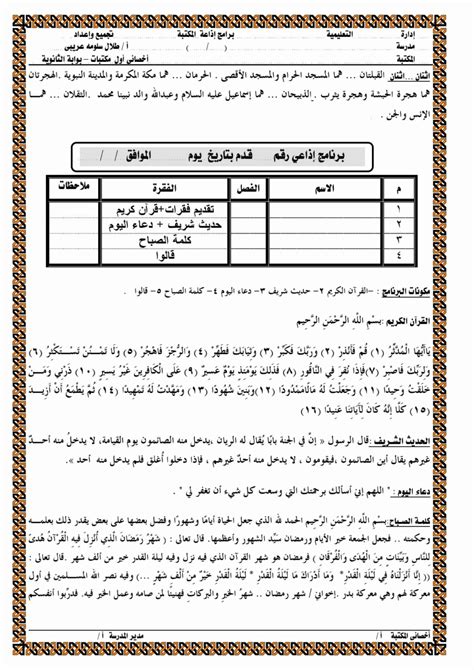 إدارة التعليمية برامج إذاعة المكتبة تجميع وإعداد
مدرسة ( / ) أ / طلال سلومه عريبى
المكتبة أخصائى أول مكتبات – بوابة الثانوية
اثنان ... اثنان القبلتان ... هما المسجد الحرام والمسجد الأقصى . الحرمان ... هما مكة المكرمة والمدينة النبوية .الهجرتان
هما هجرة الحبشة وهجرة يثرب . الذبيحان ... هما إسماعيل عليه السلام وعبدالله والد نبينا محمد .الثقلان ... هما
الإنس والجن .
برنامج إذاعي رقم قدم بتاريخ يوم الموافق / /
م الاسم الفصل الفقرة ملاحظات
١ تقديم فقرات+قرآن كريم
٢ حديث شريف + دعاء اليوم
٣ كلمة الصباح
٤ قالوا
مكونات البرنامج : ١-القرآن الكريم ٢- حديث شريف ٣- دعاء اليوم ٤- كلمة الصباح ٥- قالوا .
القرآن الكريم :بِسْمِ اللَّهِ الرَّحْمَنِ الرَّحِيمِ
يَاأَيُّهَا الْمُدَّثِّرُ (١) قُمْ فَأَنْذِرْ (٢) وَرَبَّكَ فَكَبِّرْ (٣) وَثِيَابَكَ فَطَهِّرْ (٤) وَالرُّجْزَ فَاهْجُرْ (٥) وَلَا تَمْنُنْ تَسْتَكْثِرُ (٦)
وَلِرَبِّكَ فَاصْبِرْ (٧) فَإِذَا نُقِرَ فِي النَّاقُورِ (٨) فَذَلِكَ يَوْمَئِذٍ يَوْمٌ عَسِيرٌ (٩) عَلَى الْكَافِرِينَ غَيْرُ يَسِيرٍ (١٠) ذَرْنِي وَمَنْ
خَلَقْتُ وَحِيدًا (١١) وَجَعَلْتُ لَهُ مَالًامَمْدُودًا (١٢) وَبَنِينَ شُهُودًا (١٣) وَمَهَّدْتُ لَهُ تَمْهِيدًا (١٤) ثُمَّ يَطْمَعُ أَنْ أَزِيدَ
(١٥) كَلَّا إِنَّهُ كَانَ لِآيَاتِنَا عَنِيدًا (١٦)
الحديث الشريف :قال الرسول « إنَّ في الجنة بابًا يُقال له الريان ,يدخل منه الصائمون يوم القيامة، لا يدخلُ منه أحدٌ
غيرهم يقال أين الصائمون ،فيقومون ، لا يدخل منه أحدٌ غيرهم ، فإذا دخلوا أُغلق فلم يدخل منه أحد»
دعاء اليوم : " اللهم إني أسألك برحمتك التي وسعت كل شيء أن تغفر لي " .
كلمة الصباح:بِسْمِ اللَّهِ الرَّحْمَنِ الرَّحِيمِ الحمد لله الذي جعل الحياة أيامًا وشهورًا وفضل بعضها على بعض بقدر ذلك بعلمــه
وحكمته .. فجعل الجمعة خير الأيام وجعل شهر رمضان سيِّد الشهور وأعظمها .. (شَهْرُ رَمَضَانَ الَّذِي أُنْزِلَ فِيهِ الْقُرْآنُ هُدًى
لِلنَّاسِ وَبَيِّنَاتٍ مِنَ الْهُدَى وَالْفُرْقَانِ ) فرمضان هو شهر القرآن الذي فيه نزل وفيه ليلة القدر خير من ألف شهر .قال تعالى
(( إِنَّا أَنْزَلْنَاهُ فِي لَيْلَةِ الْقَدْرِ* وَمَا أَدْرَاكَ مَا لَيْلَةُ الْقَدْرِ * لَيْلَةُ الْقَدْرِ خَيْرٌ مِنْ أَلْفِ شَهْرٍ ...) وفيه نصر الله المسلمين في أول
معركة لهم وهي معركة بدر .إخواني / شهر رمضان .. شهر الخير والبركات فهنيئًا لمن صامه وعمل الخير فيه. فدرِّبوا أنفسكم
أخصائى المكتبة أ / مدير المدرسة أ /